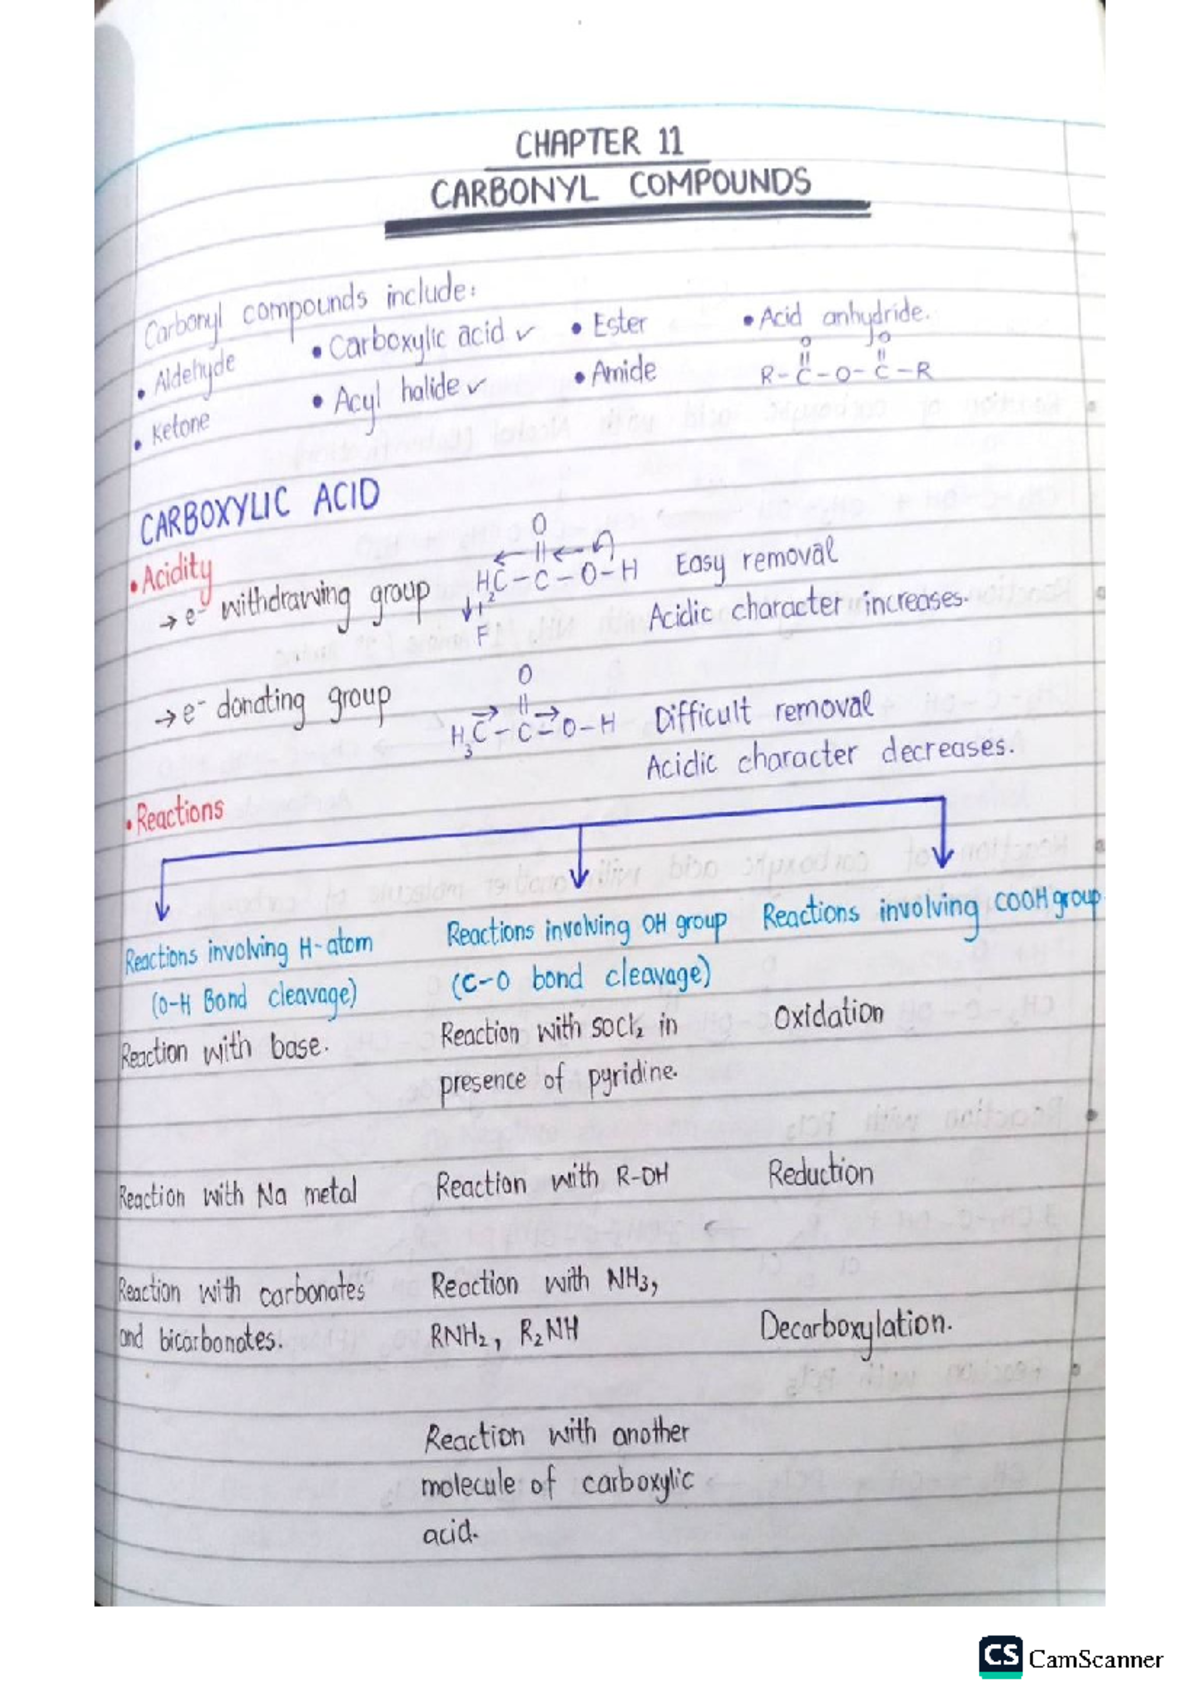 CHAPTER 11
CARBONYL COMPOUNDS
Carbonyl compounds include:
• Aldehyde • Carboxylic acid ✓ • Ester • Acid anhydride.
• Ketone • Acyl halide ✓ • Amide
O O
R-C-O-C-R
CARBOXYLIC ACID
• Acidity
→ e⁻ withdrawing group
O
H₂C-C-O-H Easy removal
F
Acidic character increases.
→ e⁻ donating group
O
H₃C-C-O-H Difficult removal
Acidic character decreases.
• Reactions
Reactions involving H-atom Reactions involving OH group Reactions involving COOH group
(O-H Bond cleavage) (C-O bond cleavage)
Reaction with base. Reaction with SOCl₂ in Oxidation
presence of pyridine.
Reaction with Na metal Reaction with R-OH Reduction
Reaction with carbonates Reaction with NH₃,
and bicarbonates. RNH₂, R₂NH Decarboxylation.
Reaction with another
molecule of carboxylic
acid.
CS CamScanner